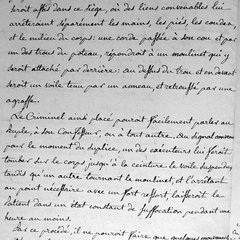 seroit assis dans ce siége, où des liens convenables lui
arrêteroient séparément les mains, les pieds, les coudes,
et le milieu du corps: une corde passée à son cou et par
un des trous du poteau, répondroit à un moulinet qui y
seroit attaché par derriere: Au dessus du trou et en devant
seroit un voile tenu par un anneau, et retroussé par une
agraffe.
Le Criminel ainsi placé pourroit facilement parler au
peuple, à son Confesseur, ou à tout autre. Au signal convenu
pour le moment du suplice, un des exécuteurs lui feroit
tomber sur le corps jusqu'à la ceinture le voile suspendu,
tandis qu'un autre tournant le moulinet, et l'arrêtant
au point nécessaire avec un fort ressort, laisseroit le
Patient dans un état constant de suffocation pendant une
heure au moins.
Par ce procédé, il ne pourroit faire que quelques mouvemens